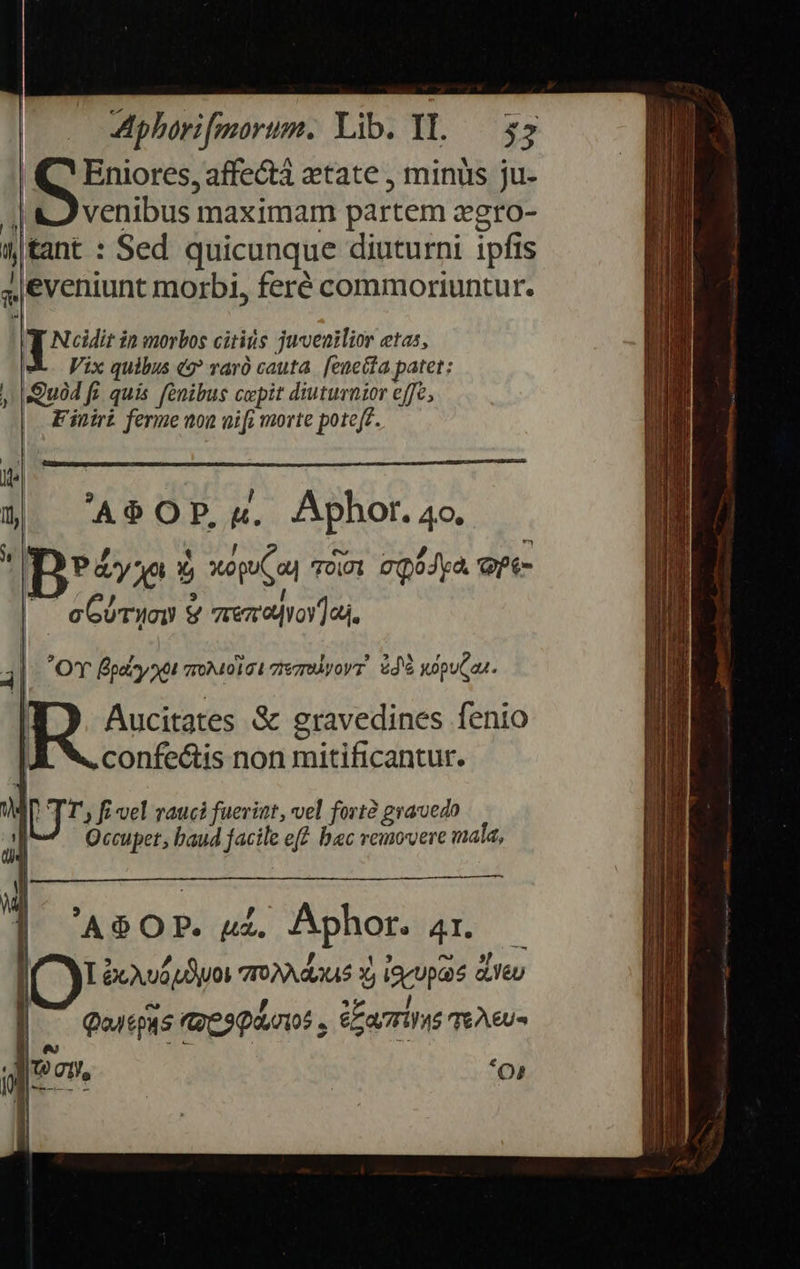 Aphoriſmorum. Lib. II. 53
SEniores, affectâ ætate, minùs ju-
venibus maximam partem ægro-
tant : Sed quicunque diuturni ipſis
eveniunt morbi, ferè commoriuntur.
INcidit in morbos citiùs juvenilior ætas,
Vix quibus & rarò cauta ſenecta patet:
Quòd ſi quis ſenibus cœpit diuturnior eſſe,
Finiri ferme non niſi morte poteſt.
ἈΦΟΡ. μ΄. Aphor. 40.
ΒΡάγχοι ϗ κόρυζαι τοῖσι σφόδρα πρε-
σβύτῃσιν ȣ πεπαίνονται.
ΟΥ βράγχοι πολιοῖσι πεπαίνοντ᾽ ȣδὲ κόρυζαι.
RAucitates & gravedines ſenio
confectis non mitificantur.
UT, ſi vel rauci fuerint, vel fortè gravedo
Occupet, haud facile eſt hæc removere mala.
ἈΦΟΡ. μά. Aphor. 41.
ΟΙ ἐκλυόμϟμοι πολλάκις ϗ ἰσχυρῶς ἄνευ
φανερῆς προφάσιος, ἐξαπίνης τελευ-
τῶσιν.
Οἱ